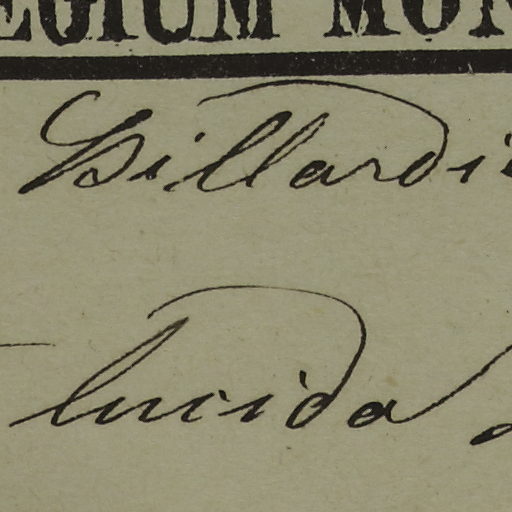 EGIUM MON
Billardi
lucida